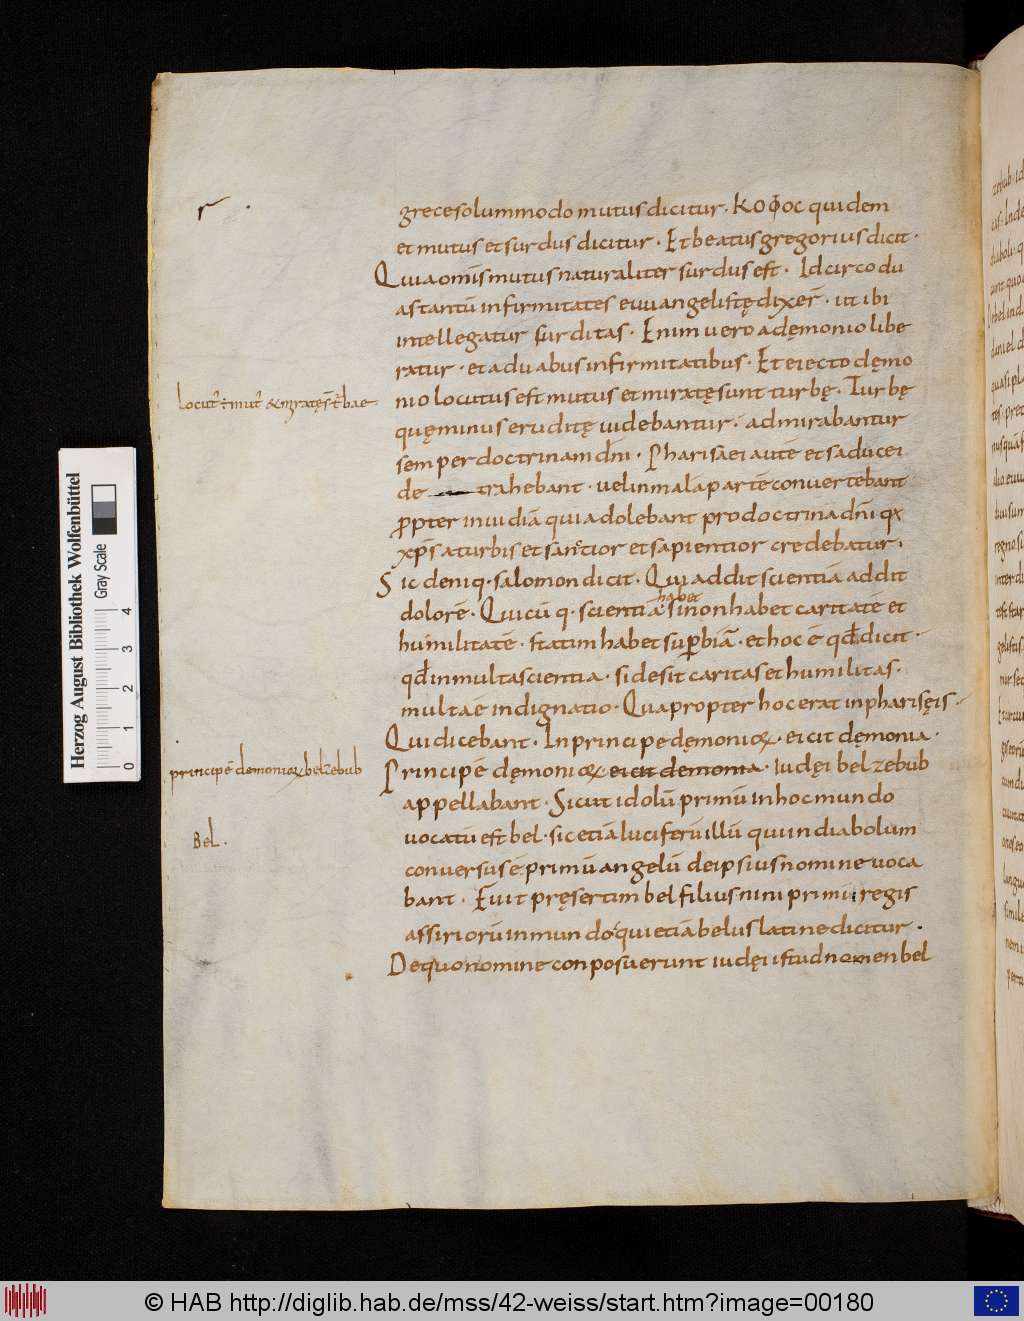 grece solummodo mutus dicitur. ΚΟΦΟC quidem
et mutus et surdus dicitur. Et beatus gregorius dicit.
Quia omīs mutus naturaliter surdus est. Idcirco du
as tantū infirmitates euuangelistę dixer̄. ut ibi
intellegatur surditas. Enim uero a dęmonio libe
ratur. et a duabus infirmitatibus. Et eiecto dęmo
locut᷒ ÷ mut᷒ & miratę s̄t t᷒bae
nio locutus est mutus et miratę sunt turbę. Turbę
quę minus eruditę uidebantur. admirabantur
semper doctrinam dn̄i. Pharisaei autē et saducei
de trahebant. uel in mala partē conuertebant
ꝓpter inuidiā quia dolebant pro doctrina dn̄i qꝛ
xp̄s a turbis et sanctior et sapientior credebatur.
Sic deniq. salomon dicit. Qui addit scientiā addit
dolorē. Quicū q. scientiā habet si non habet caritatē et
humilitatē. statim habet suꝑbiā. et hoc ē qđ dicit.
qđ in multa scientia. si desit caritas et humilitas.
multa ē indignatio. Quapropter hoc erat in pharisęis.
Qui dicebant. In principe dęmonioꝝ. eicit dęmonia.
principē demonioꝝ belzebub
Principē dęmonioꝝ eicit demonia. iudęi belzebub
appellabant. Sicut idolū primū in hoc mundo
Bel.
vocatū est bel. sic etiā luciferū illū qui in diabolum
conuersus ē primū angelū de ipsius nomine uoca
bant. Fuit pręsertim bel filius nini primi regis
assiriorū in mundo qui etiā belus latine dicitur.
De quo nomine conposuerunt iudęi istud nomen bel
Herzog August Bibliothek Wolfenbüttel
Gray Scale
0 1 2 3 4
© HAB http://diglib.hab.de/mss/42-weiss/start.htm?image=00180